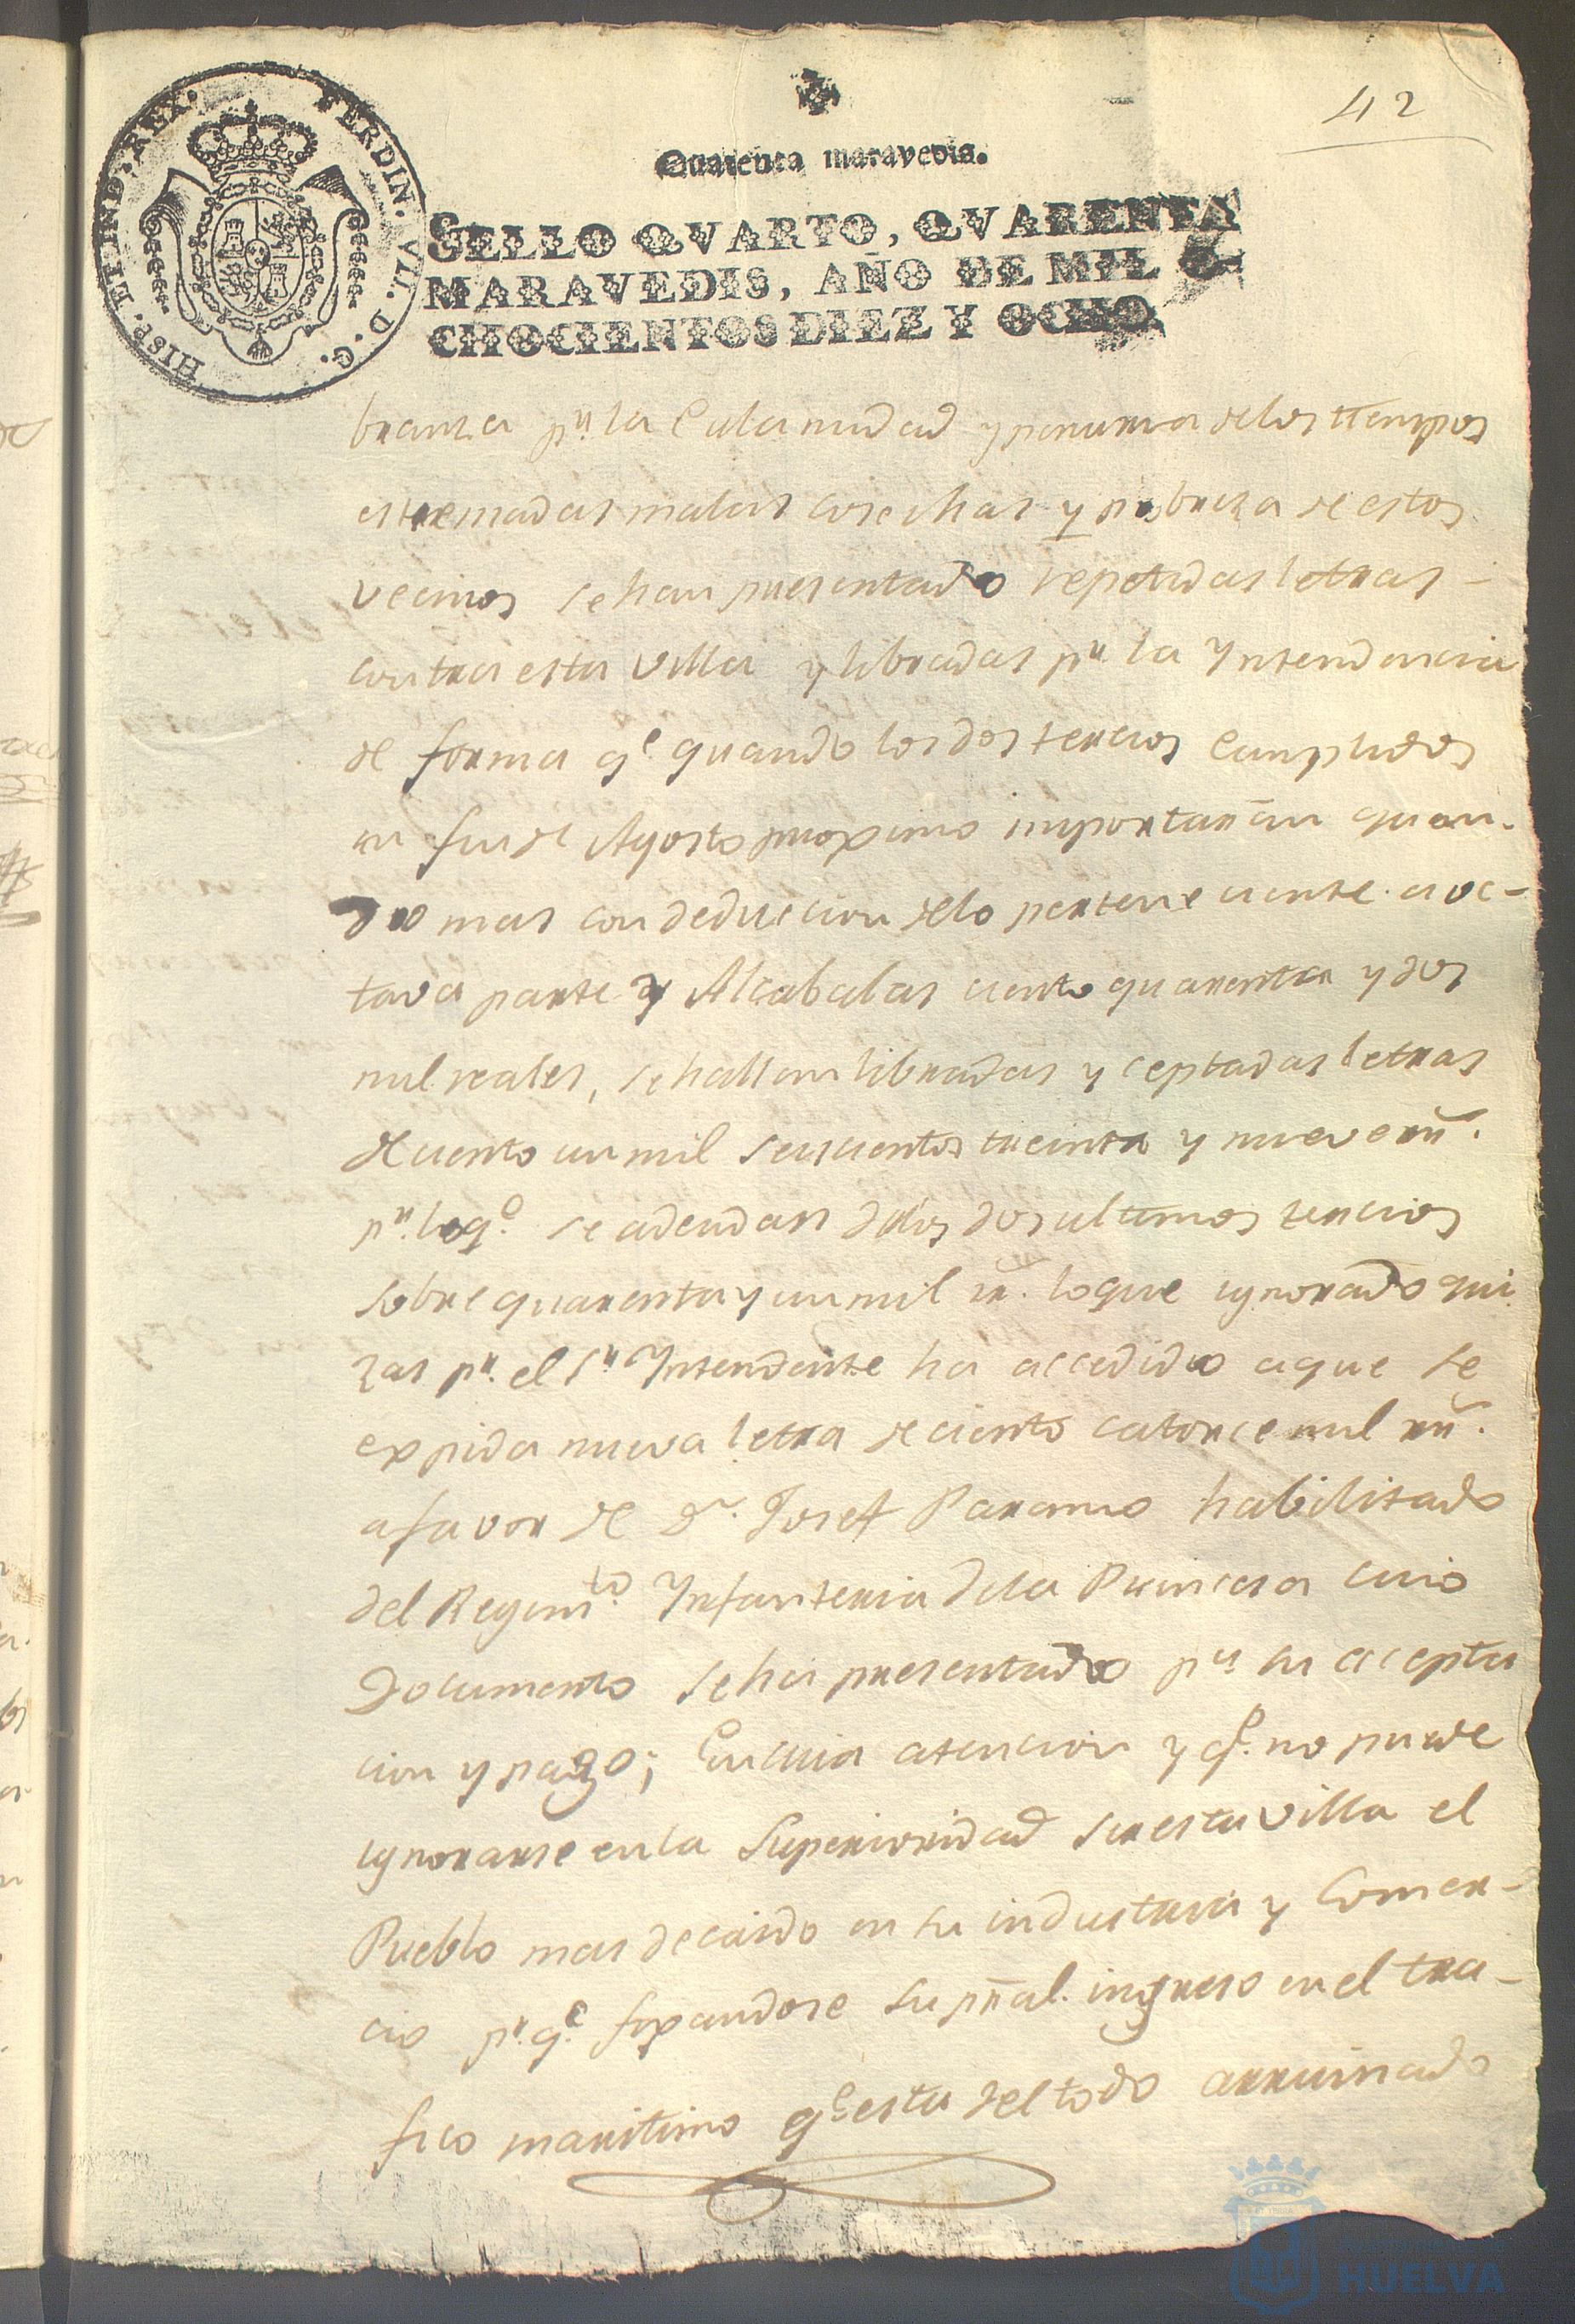 42
HISP. ET IND. REX. FERDIN. VII. D. G.
Quarenta maravedis.
SELLO QVARTO, QVARENTA
MARAVEDIS, AÑO DE MIL O
CHOCIENTOS DIEZ Y OCHO
branza pr. la Calamidad y penuria delos tiempos
estremadas malas cosechas y pobreza de estos
vecinos se han presentado repetidas letras
contra esta villa y libradas pr. la Yntendencia
de forma qe. quando los dos tercios Cumplidos
en fin de Agosto proximo importarán quan-
do mas con deducion delo perteneciente a oc-
tava parte y Alcabalas ciento quarenta y dos
mil reales, se hallan libradas y ceptadas letras
de ciento un mil seiscientos treinta y nueve rrs.
pr. lo qe. se adeudan delos dos ultimos tercios
sobre quarenta y un mil rs. loque ignorado qui
zas pr. el Sr. Yntendente ha accedido aque se
expida nueva letra de ciento catorce mil rrs.
a favor de Dn. Josef Paramo habilitado
del Regimto. Ynfanteria dela Princesa cuio
Documento se ha presentado pa. su acepta
cion y pago; En cuia atencion y qe. no puede
ignorarse en la Superioridad ser esta villa el
Pueblo mas decaido en su industria y Comer-
cio pr. qe. fixandose su prãl. ingreso en el tra-
fico maritimo qe. esta del todo arruinado
HUELVA